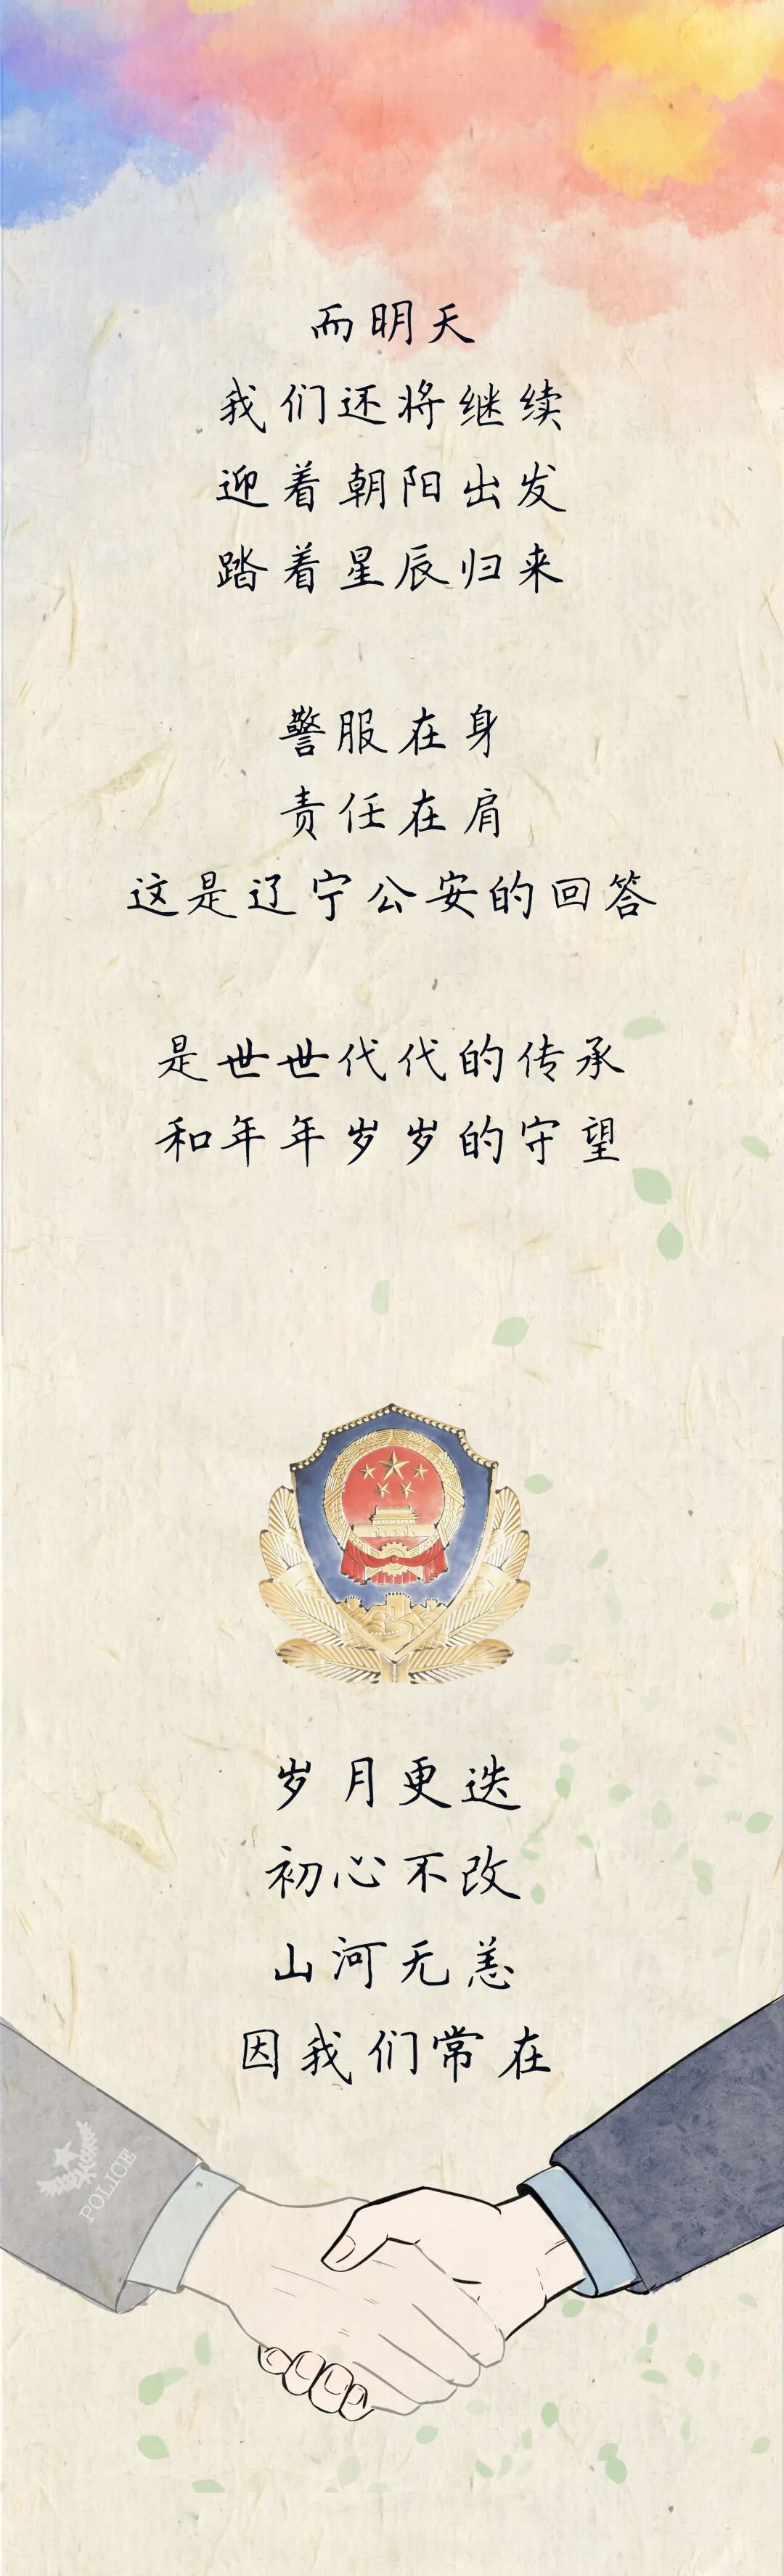 而明天
我们还将继续
迎着朝阳出发
踏着星辰归来
警服在身
责任在肩
这是辽宁公安的回答
是世世代代的传承
和年年岁岁的守望
岁月更迭
初心不改
山河无恙
因我们常在
POLICE